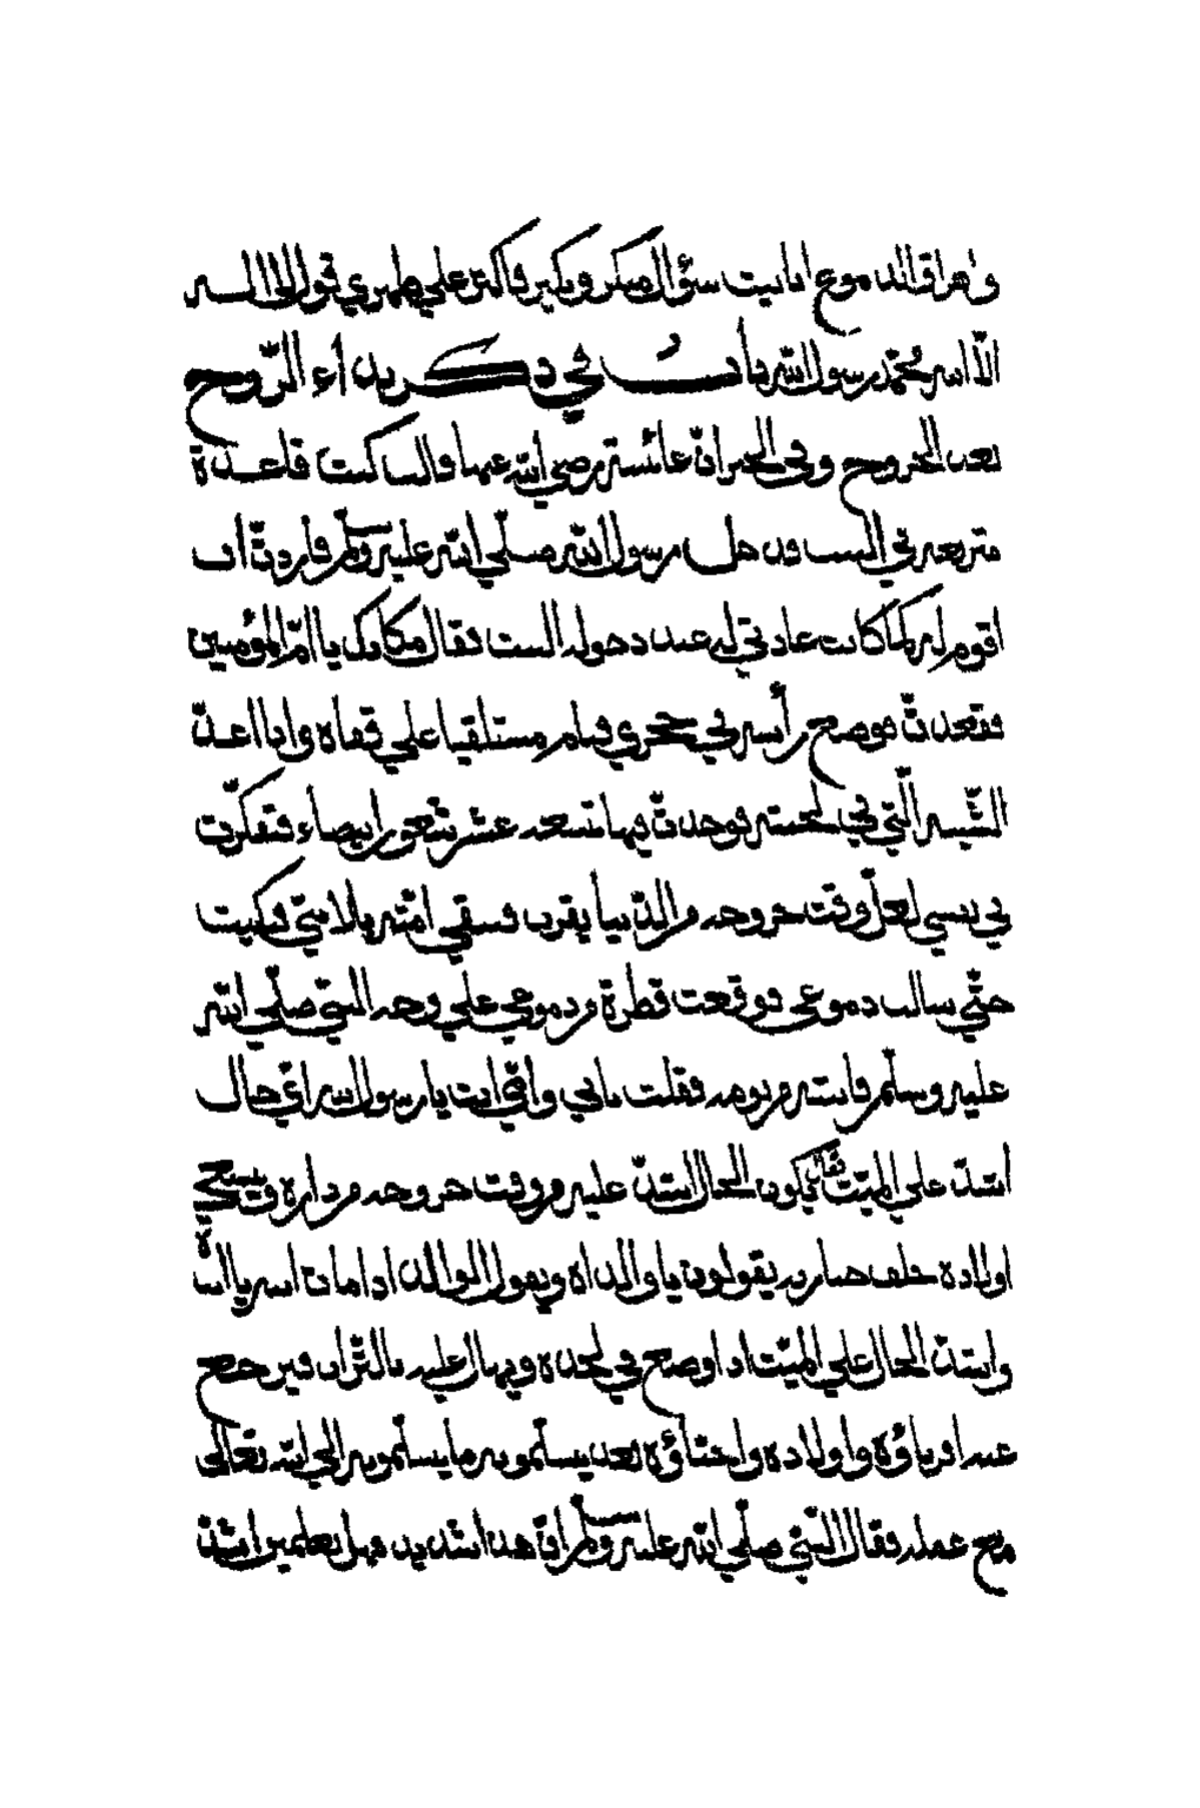 واهراق الدموع اذا نسيت سؤال منكر ونكير فاكثر على ظهري قول لا اله
الا الله محمد رسول الله باب في ذكر نداء الروح
بعد الخروج وفي الخبر ان عائشة رضي الله عنها قالت كنت قاعدة
متربعة في البيت دخل رسول الله صلى الله عليه وسلم فأردت ان
اقوم له كما كانت عادتي له عند دخوله البيت فقال مكانك يا ام المؤمنين
فقعدت فوضع رأسه في حجري فنام مستلقيا على قفاه وانا اعد
الشيب التي في لحيته فوجدت فيها تسعة عشر شعورا بيضاء فتفكرت
في نفسي لعل وقت خروجه من الدنيا يقرب فتبقى امته بلا نبي فبكيت
حتى سالت دموعي فوقعت قطرة من دموعي على وجه النبي صلى الله
عليه وسلم فانتبه من نومه فقلت بابي وامي انت يا رسول الله اي حال
اشد على الميت فقال يكون الحال اشد عليه من وقت خروجه من داره وتصيح
اولاده خلف جنازته يقولون يا والداه ويقول الوالد اذا مات ابنه يا ابناه
واشد الحال على الميت اذا وضع في لحده ويهال عليه بالتراب فيرجع
عنه اقرباؤه واولاده واحباؤه بعد يسلمونه ما يسلمونه الى الله تعالى
مع عمله فقال النبي صلى الله عليه وسلم ان هذا شديد فهل تعلمين اشد